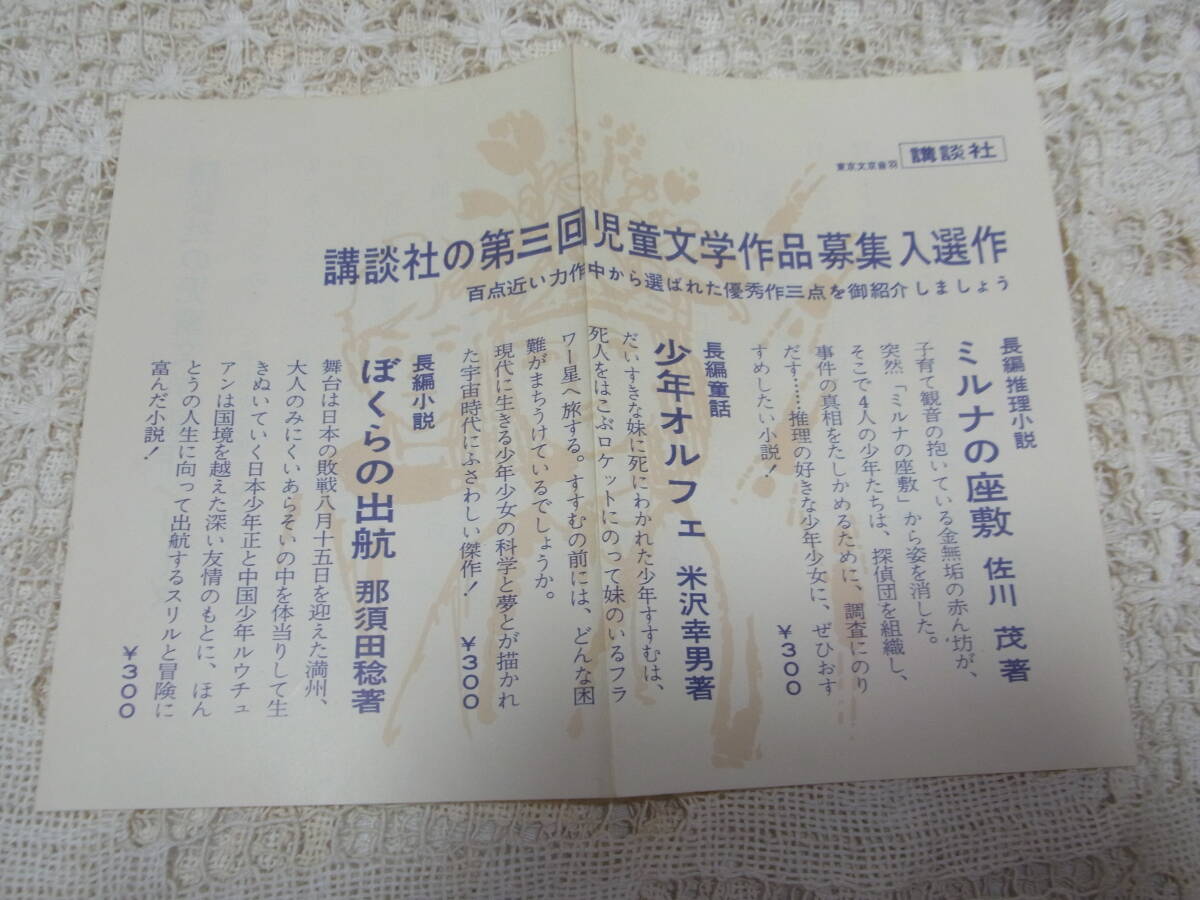 東京文京音羽 講談社
講談社の第三回児童文学作品募集入選作
百点近い力作中から選ばれた優秀作三点を御紹介しましょう
長編推理小説
ミルナの座敷 佐川 茂著
子育て観音の抱いている金無垢の赤ん坊が、
突然「ミルナの座敷」から姿を消した。
そこで4人の少年たちは、探偵団を組織し、
事件の真相をたしかめるために、調査にのり
だす……推理の好きな少年少女に、ぜひおす
すめしたい小説！
￥300
長編童話
少年オルフェ 米沢幸男著
だいすきな妹に死にわかれた少年すすむは、
死人をはこぶロケットにのって妹のいるフラ
ワー星へ旅する。すすむの前には、どんな困
難がまちうけているでしょうか。
現代に生きる少年少女の科学と夢とが描かれ
た宇宙時代にふさわしい傑作！
￥300
長編小説
ぼくらの出航 那須田稔著
舞台は日本の敗戦八月十五日を迎えた満州、
大人のみにくいあらそいの中を体当りして生
きぬいていく日本少年正と中国少年ルウチェ
アンは国境を越えた深い友情のもとに、ほん
とうの人生に向って出航するスリルと冒険に
富んだ小説！
￥300